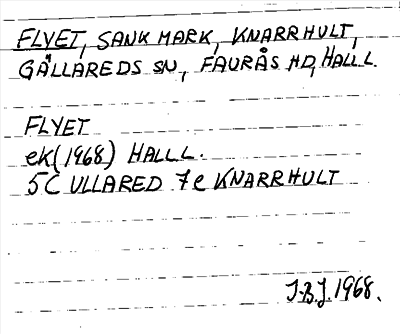 FLYET, SANK MARK, KNARRHULT,
GÄLLAREDS SN, FAURÅS HD, HALL L.
FLYET
ek (1968) HALLL.
5C ULLARED 7e KNARRHULT
J.B.J. 1968.